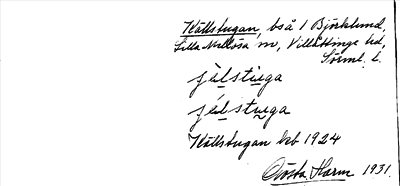 Källstugan, bså 1 Björklund,
Lilla Mellösa sn, Villåttinge hd,
Sörml. l.
jèlstuga
jélstuga
Källstugan kbt 1924
Gösta Harm 1931.